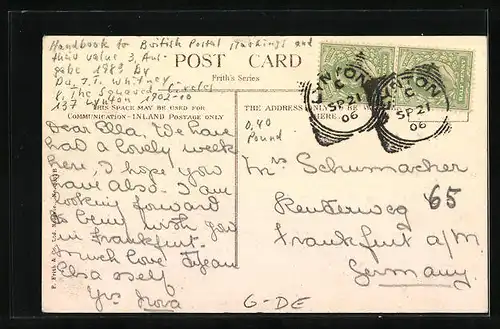 Handbook to British Postal Markings and
their value 3, Aus-
gabe 1983 by
Dr. J.T. Whitney
P. The Squared Circles
137 Lynton 1902-10
POST CARD
Frith's Series
THIS SPACE MAY BE USED FOR
COMMUNICATION—INLAND POSTAGE ONLY
THE ADDRESS ONLY
HERE.
LYNTON
C
SP 21
06
LYNTON
C
SP 21
06
0,40
Pound
Dear Ella, We have
had a lovely week
here, I hope you
have also. I am
looking forward
to being with you
in Frankfurt.
Much love
Elsa & self
Yrs Nora
Mrs Schumacher
65
Reuterweg
Frankfurt a/M.
Germany
G-DE
F. Frith & Co. Ltd.